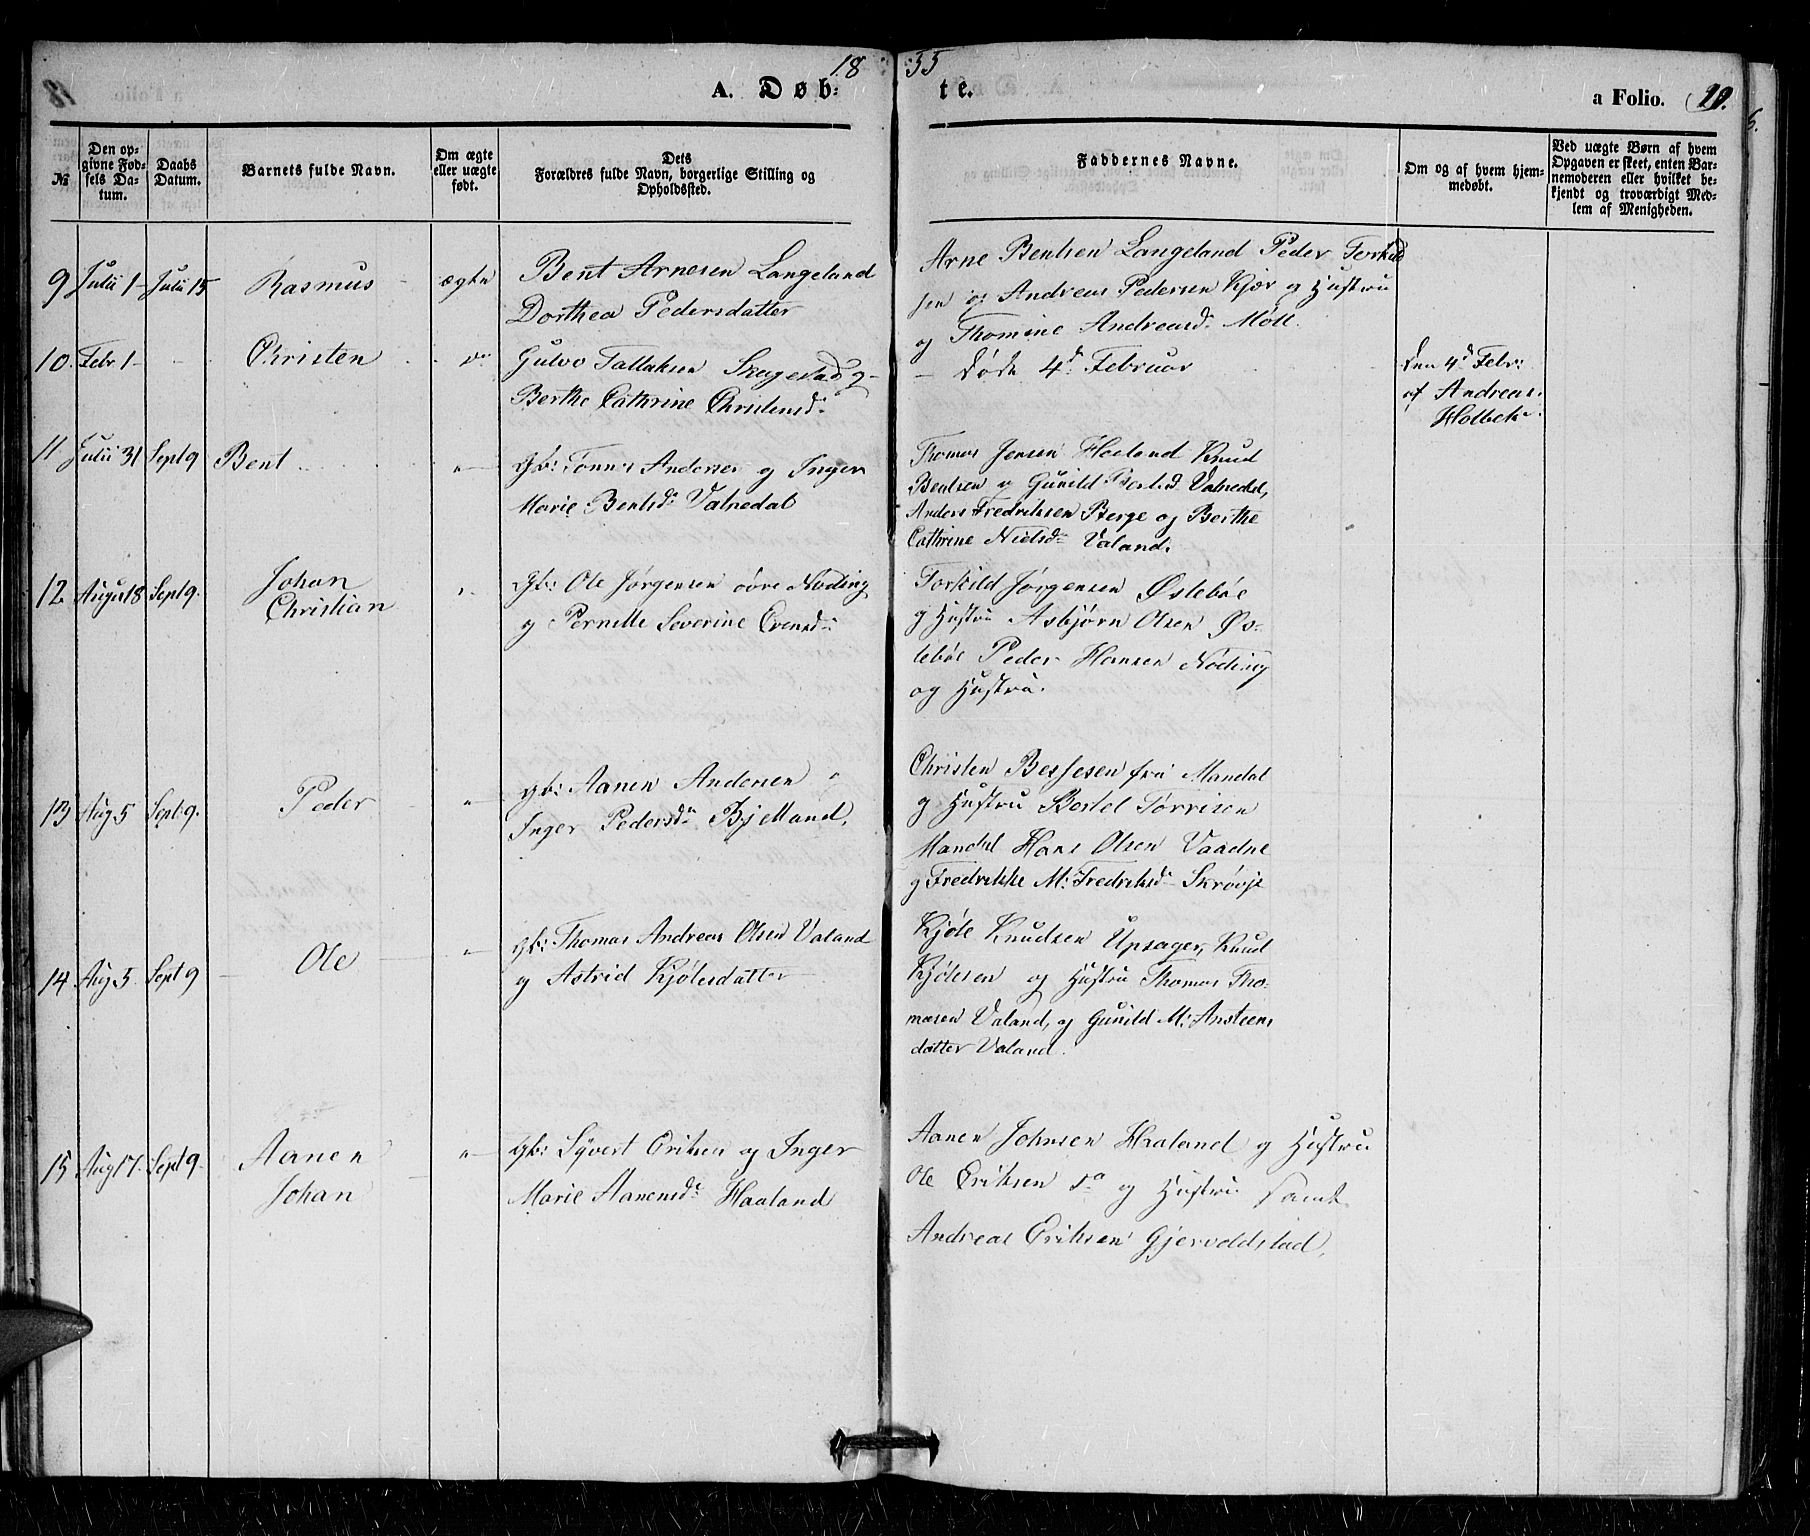 1855
A. Døbte.
a Folio. 19.
№
Den opgivne Fødsels Datum.
Daabs Datum.
Barnets fulde Navn.
Om ægte eller uægte født.
Dets Forældres fulde Navn, borgerlige Stilling og Opholdssted.
Faddernes Navne.
Om og af hvem hjemmedøbt.
Ved uægte Børn af hvem Opgaven er skeet, enten Barnemoderen eller hvilket bekjendt og troværdigt Medlem af Menigheden.
9 Julii 1 Julii 15 Rasmus ægte Bent Arnesen Langeland
Dorthea Pedersdatter
Arne Bentsen Langeland Peder Terkild
sen og Andreas Pedersen Kjær og Hustru
og Thomine Andreasd: Møll
10. Febr 1 - Christen do Gulvo Tallaksen Skugestad og
Berthe Cathrine Christensd:
- døde 4d Februar
den 4d Febr:
af Andreas
Holbek
11 Julii 31 Sept 9 Bent " Gb: Tønnes Andersen og Inger
Marie Bentsd: Valnedal
Thomas Jensen Haaland Knud
Bentsen og Gunild Valnedal,
Anders Fredriksen Berge og Berthe
Cathrine Nielsd: Valand.
12 August 8 Sept 9. Johan
Christian
Gb: Ole Jørgensen övre Nøding
og Pernille Severine Evensd:
Torkild Jørgensen Øslebøe
og Hustru Asbjørn Olsen Øs-
lebøe Peder Hansen Nøding
og Hustru.
13 Aug 5 Sept 9. Peder " Gb: Aanen Andersen
Inger Pedersd: Bjelland.
Christen Bessesen fra Mandal
og Hustru Bertel Tørrisen
Mandal Hans Olsen Vaadne
og Fredrikke M: Fredriksd: Skrøvje
14 Aug 5. Sept 9 Ole " Gb: Thomas Andreas Olsen Valand
og Astrid Kjølesdatter
Kjøle Knudsen Upsager, Knud
Kjølesen og Hustru Thomas Tho-
masen Valand, og Gunild M: Ansteens
datter Valand.
15 Aug 17. Sept 9. Aanen
Johan
" Gb: Syvert Eriksen og Inger
Marie Aanensd: Haaland
Aanen Johnsen Haaland og Hustru
Ole Eriksen do og Hustru samt
Andreas Eriksen Gjervoldstad,